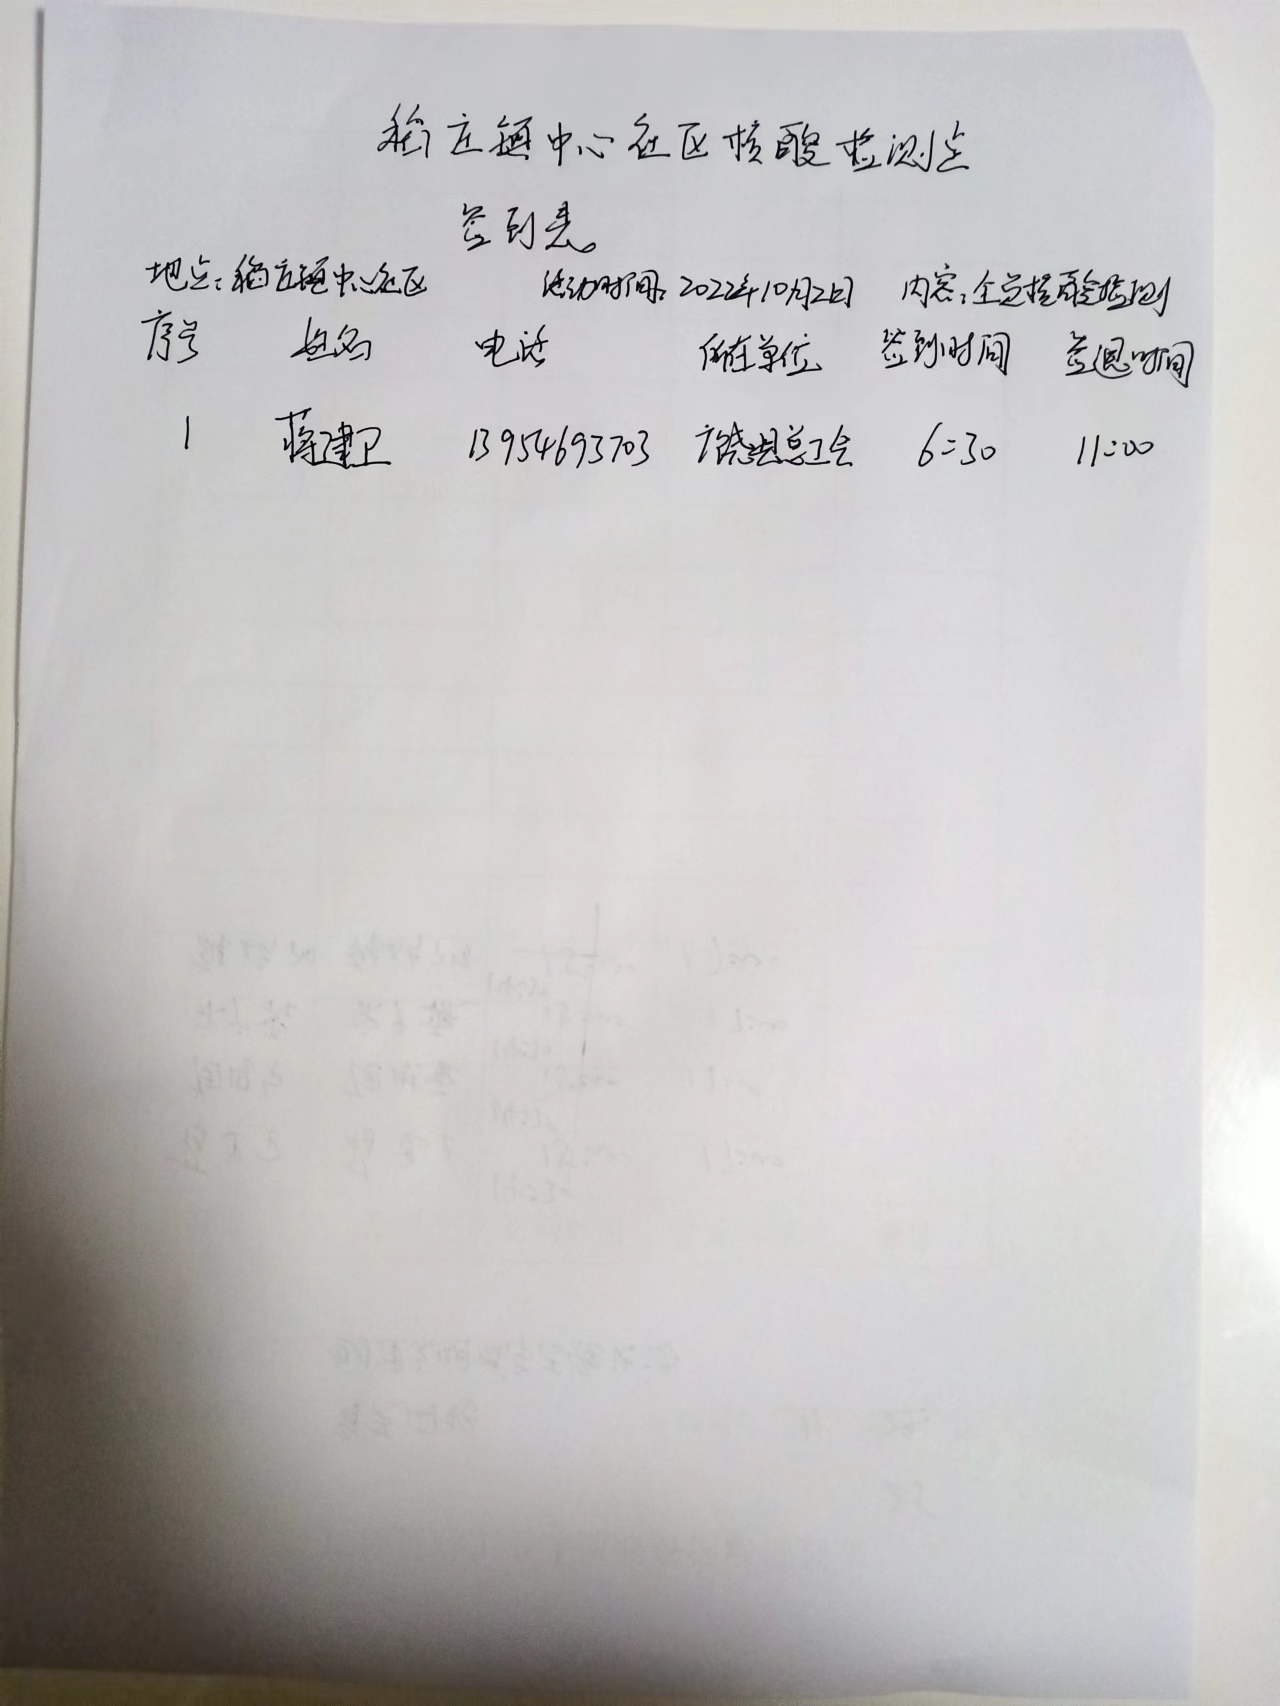 稻庄镇中心社区核酸检测点
签到表。
地点：稻庄镇中心社区 活动时间：2022年10月2日 内容：全员核酸检测
序号 姓名 电话 所在单位 签到时间 签退时间
1 蒋建卫 13954693703 广饶县总工会 6:30 11:00